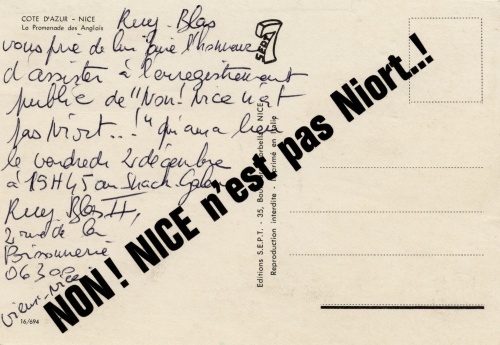 COTE D'AZUR - NICE
La Promenade des Anglais
Ruy-Blas
vous prie de lui faire l'honneur
d'assister à l'enregistrement
public de "Non! Nice n'est
pas Niort...!" qui aura lieu
le vendredi 2 décembre
à 19H45 au Snack-Galerie
Ruy Blas II,
2 rue de la
Poissonnerie
06300
Vieux-Nice
16/694
NON! NICE n'est pas Niort..!
SEPT
Editions S.E.P.T. - 35, NICE
Reproduction interdite - Imprimé en Italie